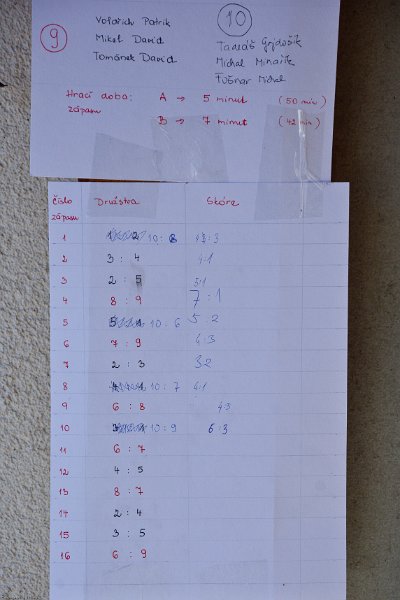 9
Mikel David
Tománek David
10
Tadeáš
Michal
Hrací doba: A → 5 minut (50 min)
zápasu B → 7 minut (42 min)
Číslo zápasu Družstva Skóre
1 10 : 8 :3
2 3 : 4 4:1
3 2 : 5 5:1
4 8 : 9 7 : 1
5 10 : 6 5 : 2
6 7 : 9 :3
7 2 : 3 3 2
8 10 : 7 :1
9 6 : 8 4:3
10 10 : 9 6:3
11 6 : 7
12 4 : 5
13 8 : 7
14 2 : 4
15 3 : 5
16 6 : 9